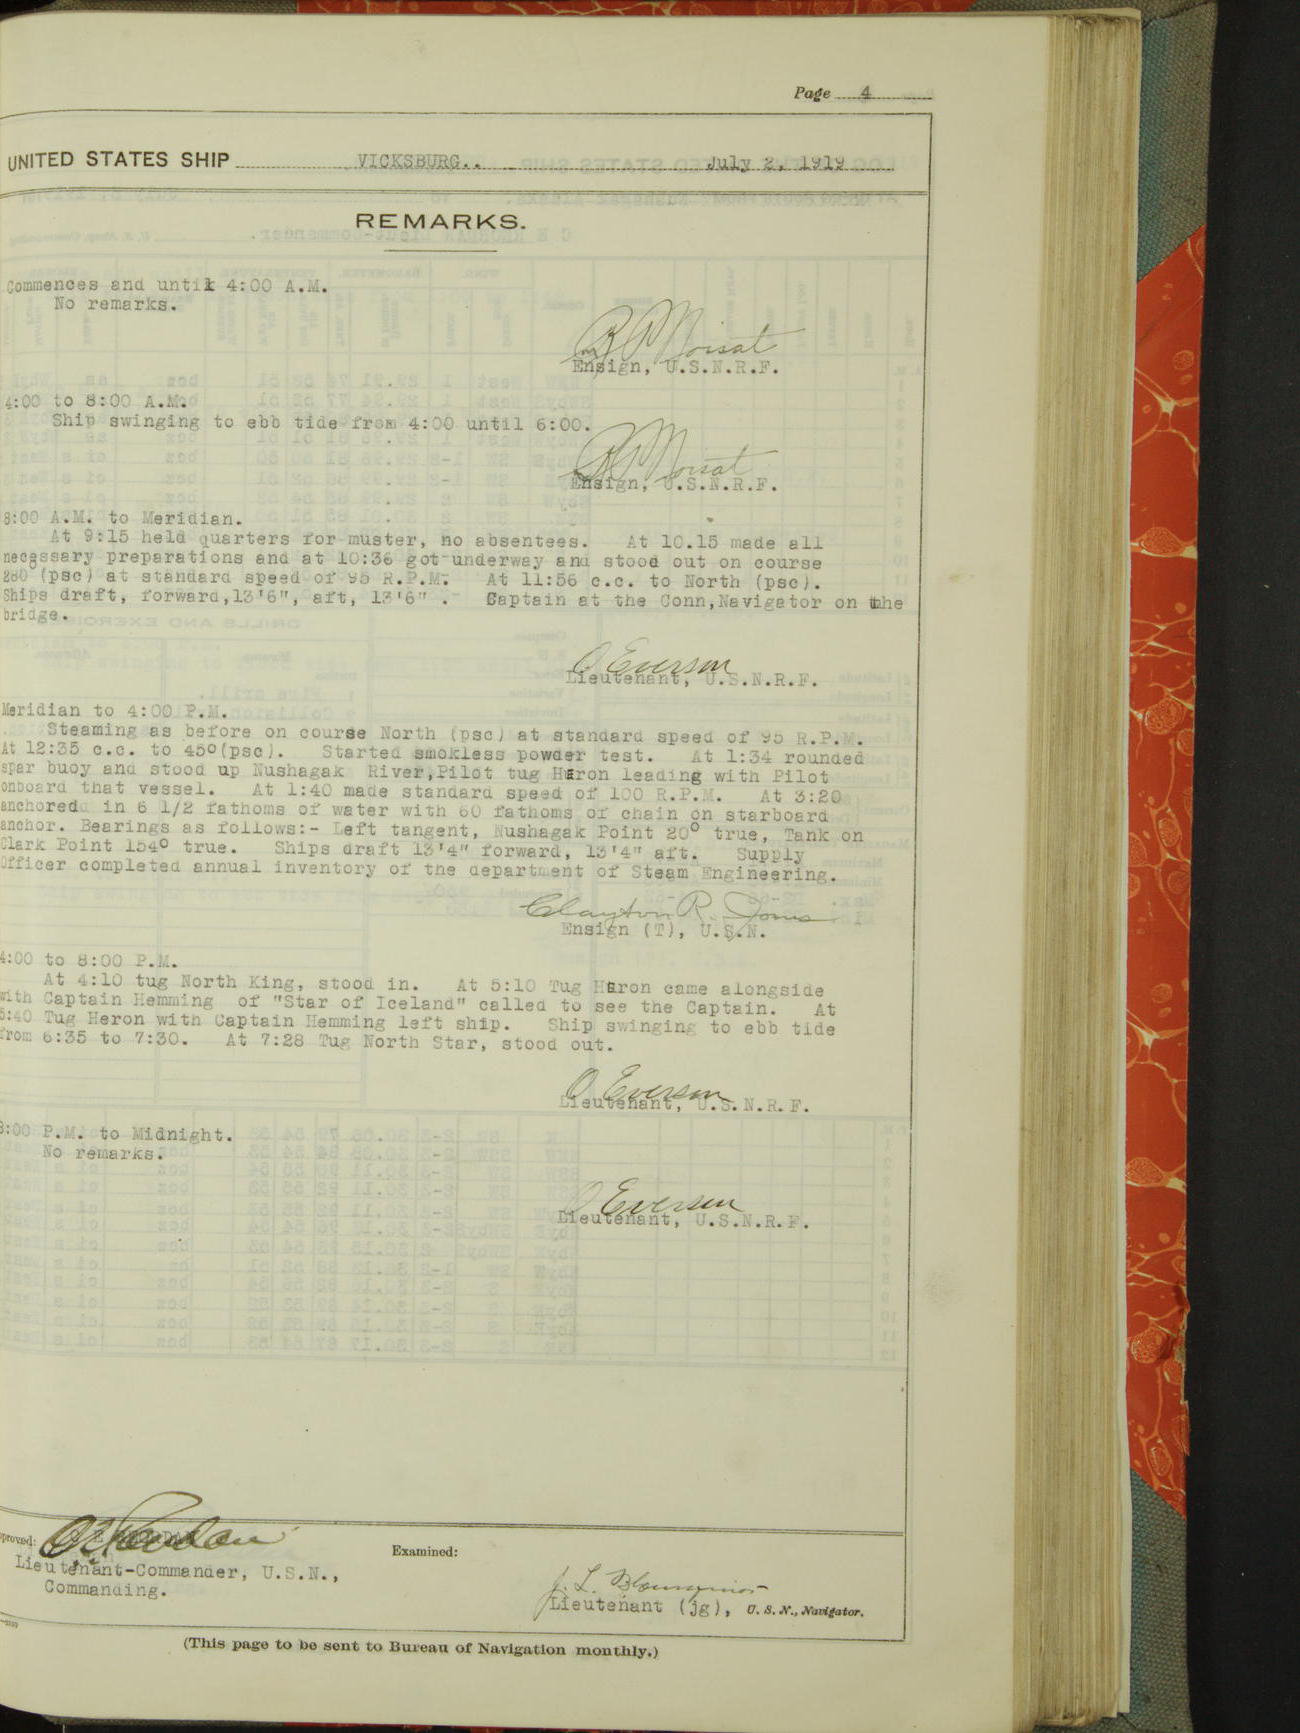 Page 4
UNITED STATES SHIP VICKSBURG.. July 2, 1919
REMARKS.
Commences and until 4:00 A.M.
No remarks.
Ensign, U.S.N.R.F.
4:00 to 8:00 A.M.
Ship swinging to ebb tide from 4:00 until 6:00.
Ensign, U.S.N.R.F.
8:00 A.M. to Meridian.
At 9:15 held quarters for muster, no absentees. At 10.15 made all
necessary preparations and at 10:36 got underway and stood out on course
280 (psc) at standard speed of 95 R.P.M. At 11:56 c.c. to North (psc).
Ships draft, forward,13'6", aft, 13'6" . Captain at the Conn,Navigator on the
bridge.
O Everson
Lieutenant, U.S.N.R.F.
Meridian to 4:00 P.M.
Steaming as before on course North (psc) at standard speed of 95 R.P.M.
At 12:35 c.c. to 45°(psc). Started smokless powder test. At 1:34 rounded
spar buoy and stood up Nushagak River,Pilot tug Heron leading with Pilot
onboard that vessel. At 1:40 made standard speed of 100 R.P.M. At 3:20
anchored in 6 1/2 fathoms of water with 60 fathoms of chain on starboard
anchor. Bearings as follows:- Left tangent, Nushagak Point 20° true, Tank on
Clark Point 154° true. Ships draft 13'4" forward, 13'4" aft. Supply
Officer completed annual inventory of the department of Steam Engineering.
Clayton R.
Ensign (T), U.S.N.
4:00 to 8:00 P.M.
At 4:10 tug North King, stood in. At 5:10 Tug Heron came alongside
with Captain Hemming of "Star of Iceland" called to see the Captain. At
5:40 Tug Heron with Captain Hemming left ship. Ship swinging to ebb tide
from 6:35 to 7:30. At 7:28 Tug North Star, stood out.
O Everson
Lieutenant, U.S.N.R.F.
8:00 P.M. to Midnight.
No remarks.
O Everson
Lieutenant, U.S.N.R.F.
pproved:
Lieutenant-Commander, U.S.N.,
Commanding.
Examined:
J. L.
Lieutenant (jg), U. S. N., Navigator.
(This page to be sent to Bureau of Navigation monthly.)